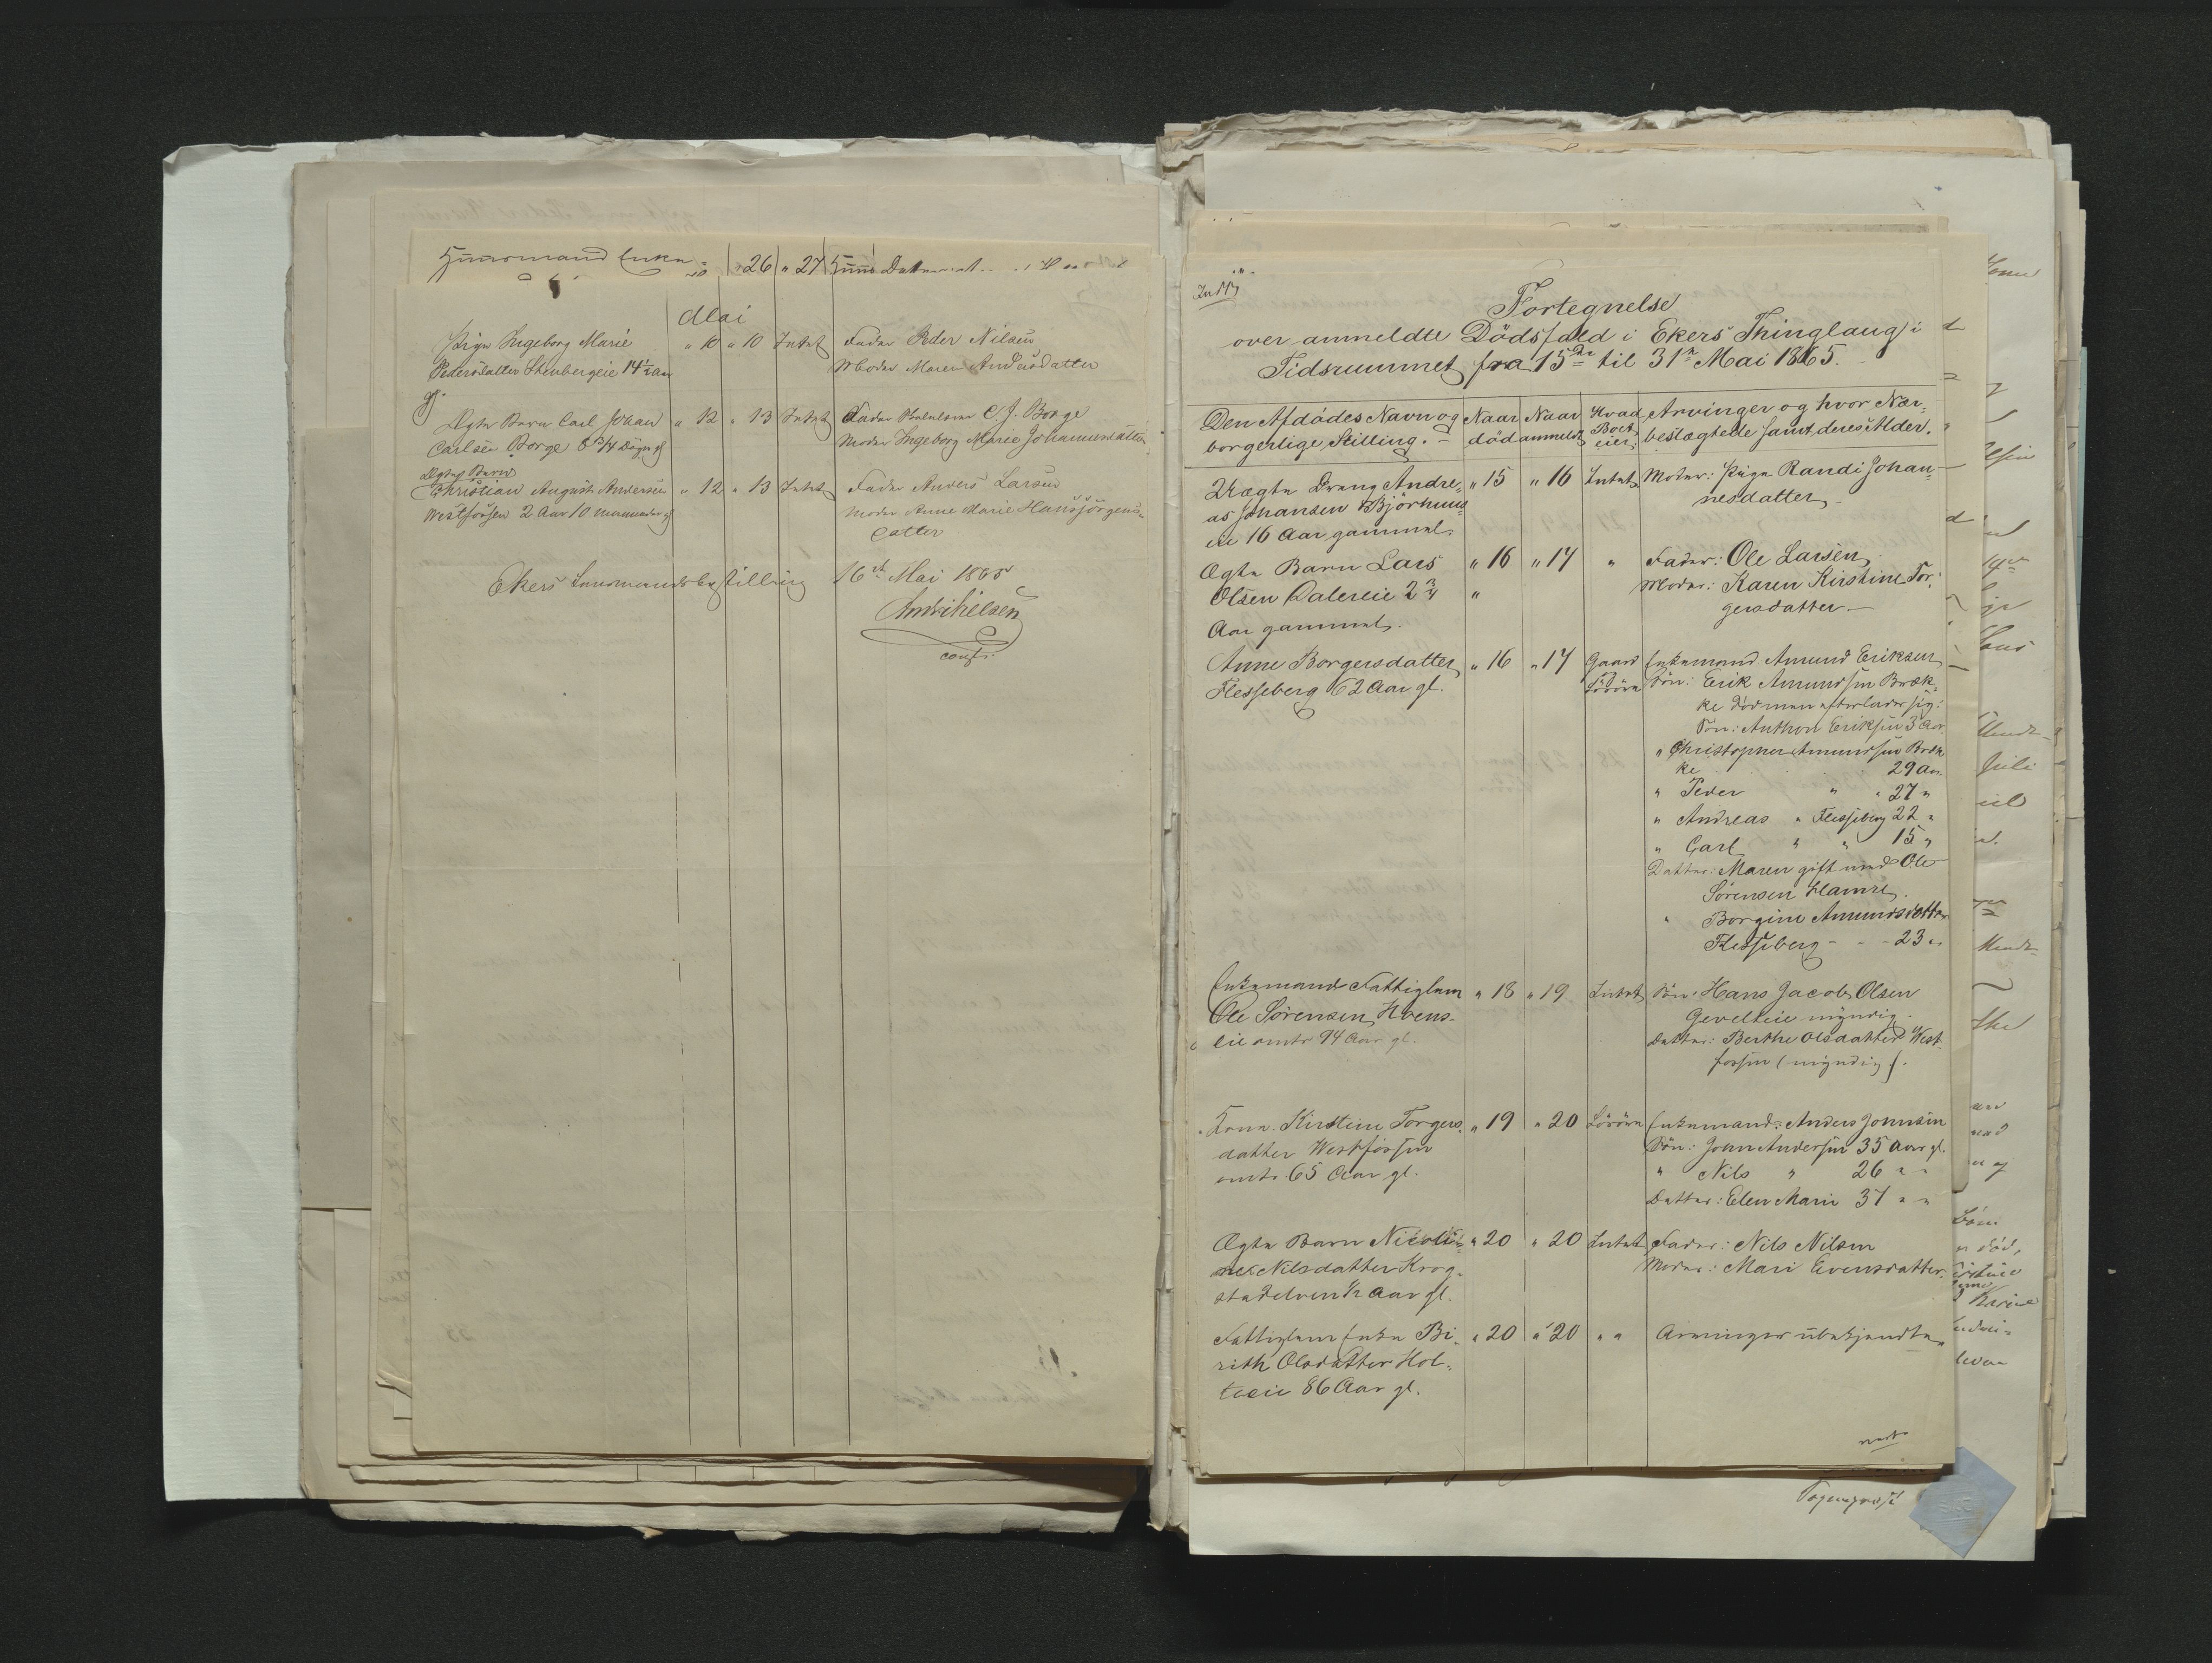 26 " 27
Mai
Pige Ingeborg Marie " 10 " 10 Intet Fader Peder Nilsen
Pedersdatter Stenbergeie 14½ Aar Moder Maren Andersdatter
gl
Ægte Barn Carl Johan " 12 " 13 Intet Fader C. J. Borge
Carlsen Borge Døgn gl Moder Ingeborg Marie Johannesdatter
Ægte Barn
Christian August Andersen " 12 " 13 Intet Fader Anders Larsen
Westfossen 2 Aar 10 Maaneder gl Moder Anne Marie Hansjörgens-
datter
Ekers Lensmandsbestilling 16de Mai 1865
const.
Fortegnelse
over anmeldte Dödsfald i Ekers Thinglaug i
Tidsrummet fra 15de til 31te Mai 1865.
Den Afdödes Navn og Naar Naar Hvad Arvinger og hvor Nær-
borgerlige Stilling. - död anmeldt Boet eier beslægtede samt deres Alder.
Uægte Dreng Andre- " 15 " 16 Intet Moder: Pige Randi Johan-
as Johansen Bjørhuus- nesdatter
eie 16 Aar gammel.
Ægte Barn Lars " 16 " 17 " Fader: Ole Larsen
Olsen Dalereie 2¾ " Moder: Karen Kirstine Tor-
Aar gammel. gersdatter -
Anne Borgersdatter " 16 " 17 Gaard Enkemand Amund Eriksen
Flesseberg 62 Aar gl. og Lösöre Sön: Erik Amundsen Bræk-
ke död men efterlader sig:
Sön: Anthon Eriksen 3 Aar
" Christopher Amundsen Bræk
ke 29 Aar
" Peder " " 27 "
" Andreas " Flesseberg 22 "
" Carl " " 15 "
Datter: Maren gift med Ole
Sörensen Hamre.
" Borgine Amundsdatter
Flesseberg - - - 23 "
Enkemand Fattiglem " 18 " 19 Intet Sön: Hans Jacob Olsen
Ole Sörensen Hvens- Gevelteie myndig.
eie omtr 94 Aar gl. Datter: Berthe Olsdatter West-
fossen (myndig).
Kone Kirstine Torgers- " 19 " 20 Lösöre Enkemand: Anders Johnsen
datter Westfossen Sön: John Andersen 35 Aar gl.
omtr. 65 Aar gl. " Nils " 26 " "
Datter: Elen Marie 37 " "
Ægte Barn Nicoli- " 20 " 20 Intet Fader: Nils Nilsen
ne Nilsdatter Krog- Moder: Mari Evensdatter.
stadelven ½ Aar gl.
Fattiglem Enke Bi- " 20 " 20 " " Arvinger ubekjendte.
rith Olsdatter Hol-
teeie 86 Aar gl.